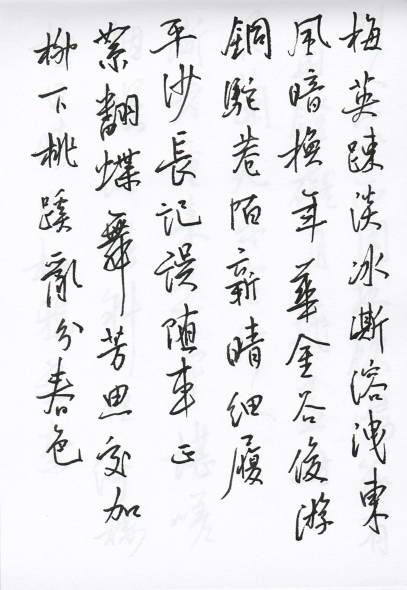 梅英踈淡冰澌溶洩東
風暗換年華金谷俊游
銅駝巷陌新晴細履
平沙長記誤随車正
絮翻蝶舞芳思交加
柳下桃蹊亂分春色